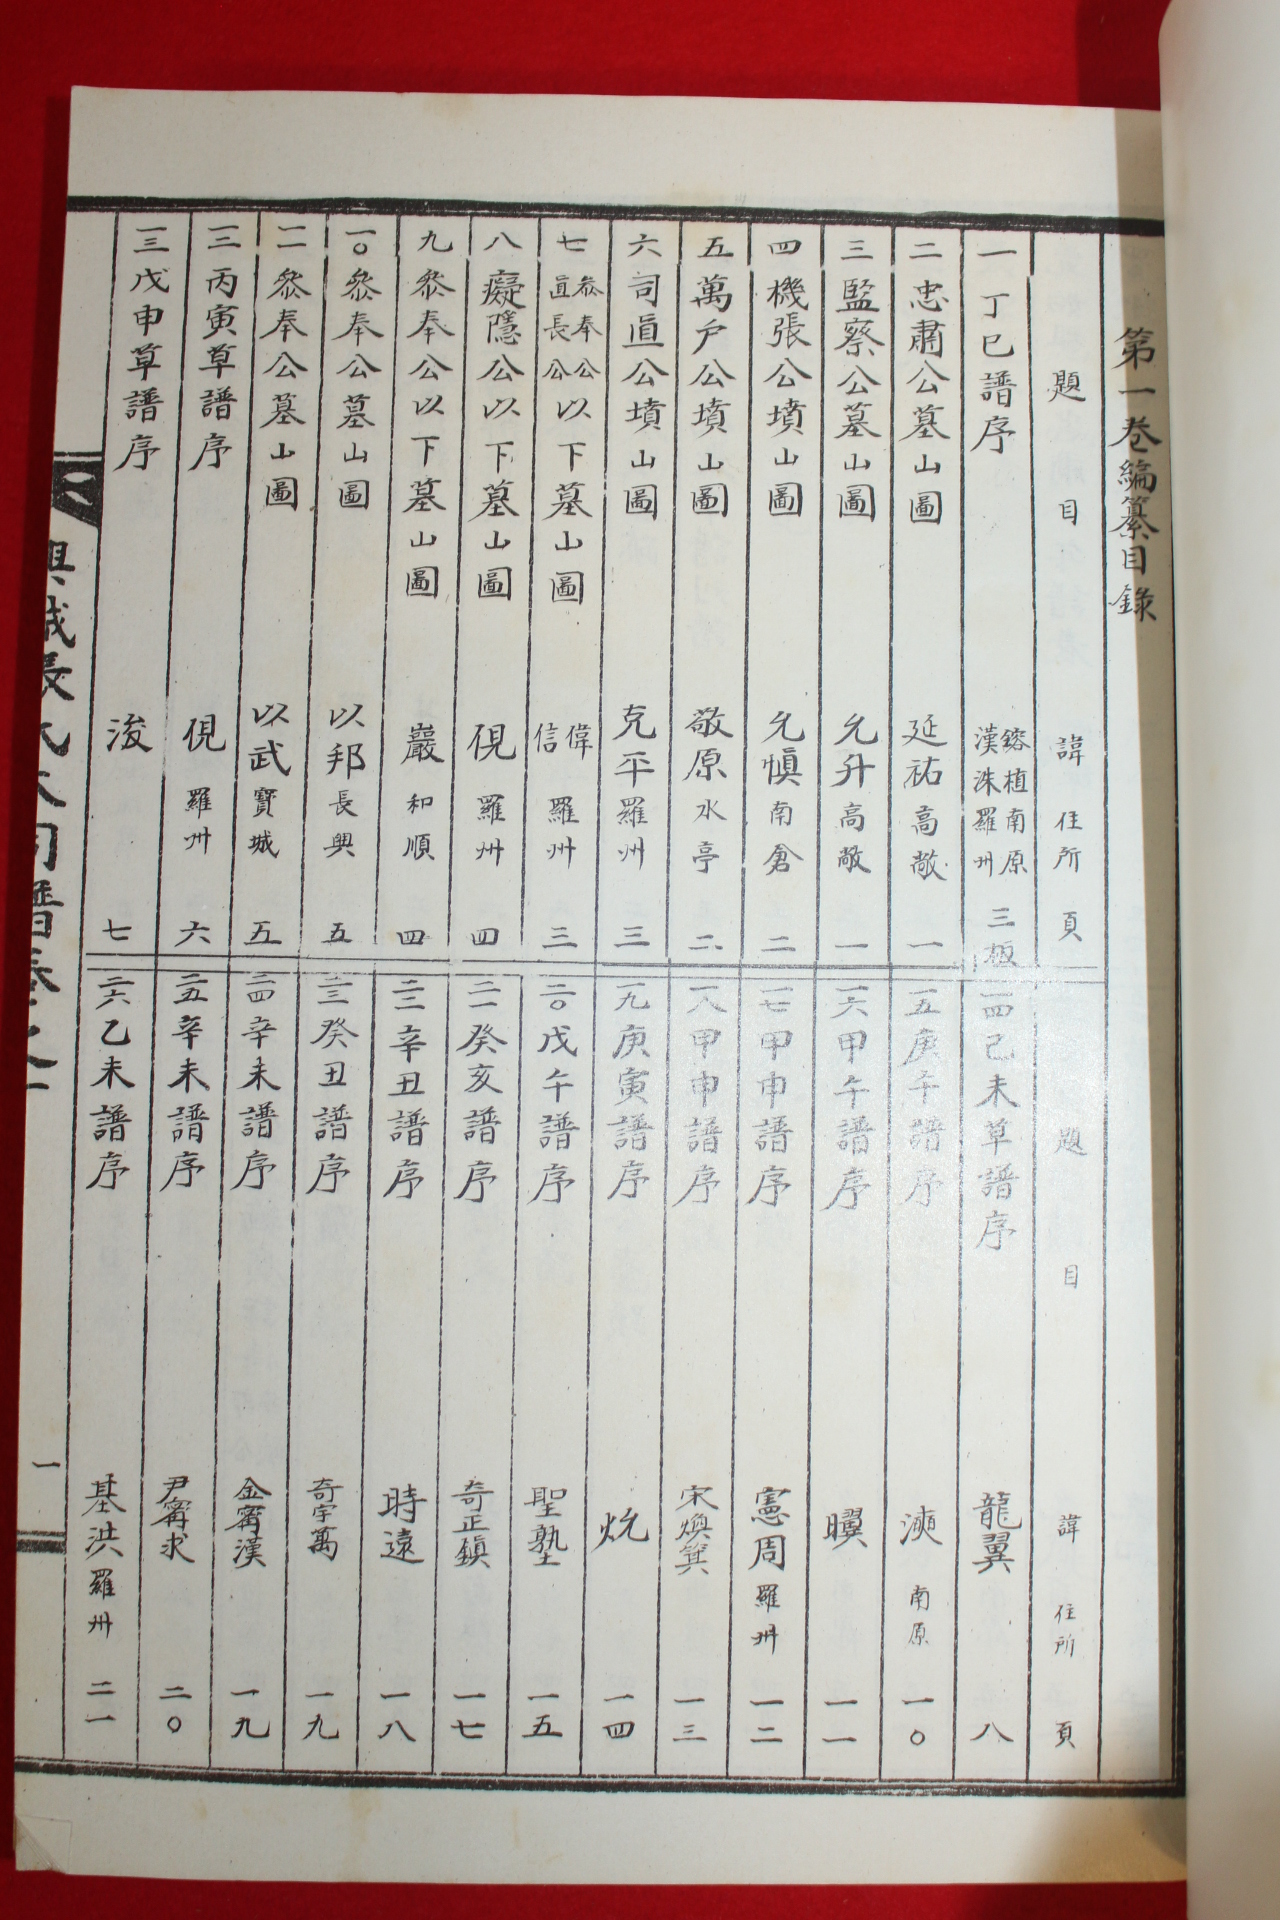 第一卷編纂目錄
題目 諱 住所 頁
一 丁巳譜序 鎔植 南原 漢洙 羅州 三板
二 忠肅公墓山圖 延祐 高敞 一
三 監察公墓山圖 允升 高敞 一
四 機張公墳山圖 允愼 南倉 二
五 萬户公墳山圖 敬原 水亭 二
六 司直公墳山圖 克平 羅州 三
七 叅奉公 直長公 以下墓山圖 偉 信 羅州 三
八 癡隱公以下墓山圖 俔 羅州 四
九 叅奉公以下墓山圖 巖 和順 四
一〇 叅奉公墓山圖 以邦 長興 五
一一 叅奉公墓山圖 以武 寶城 五
一二 丙寅草譜序 俔 羅州 六
一三 戊申草譜序 浚 七
題目 諱 住所 頁
一四 己未草譜序 龍翼 八
一五 庚午譜序 南原 一〇
一六 甲午譜序 一一
一七 甲申譜序 憲周 羅州 一二
一八 甲申譜序 宋煥箕 一三
一九 庚寅譜序 炕 一四
二〇 戊午譜序 聖塾 一五
二一 癸亥譜序 奇正鎭 一七
二二 辛丑譜序 時遠 一八
二三 癸丑譜序 奇宇萬 一九
二四 辛未譜序 金甯漢 一九
二五 辛未譜序 尹甯求 二〇
二六 乙未譜序 基洪 羅州 二一
興城張氏大同譜卷之一
一